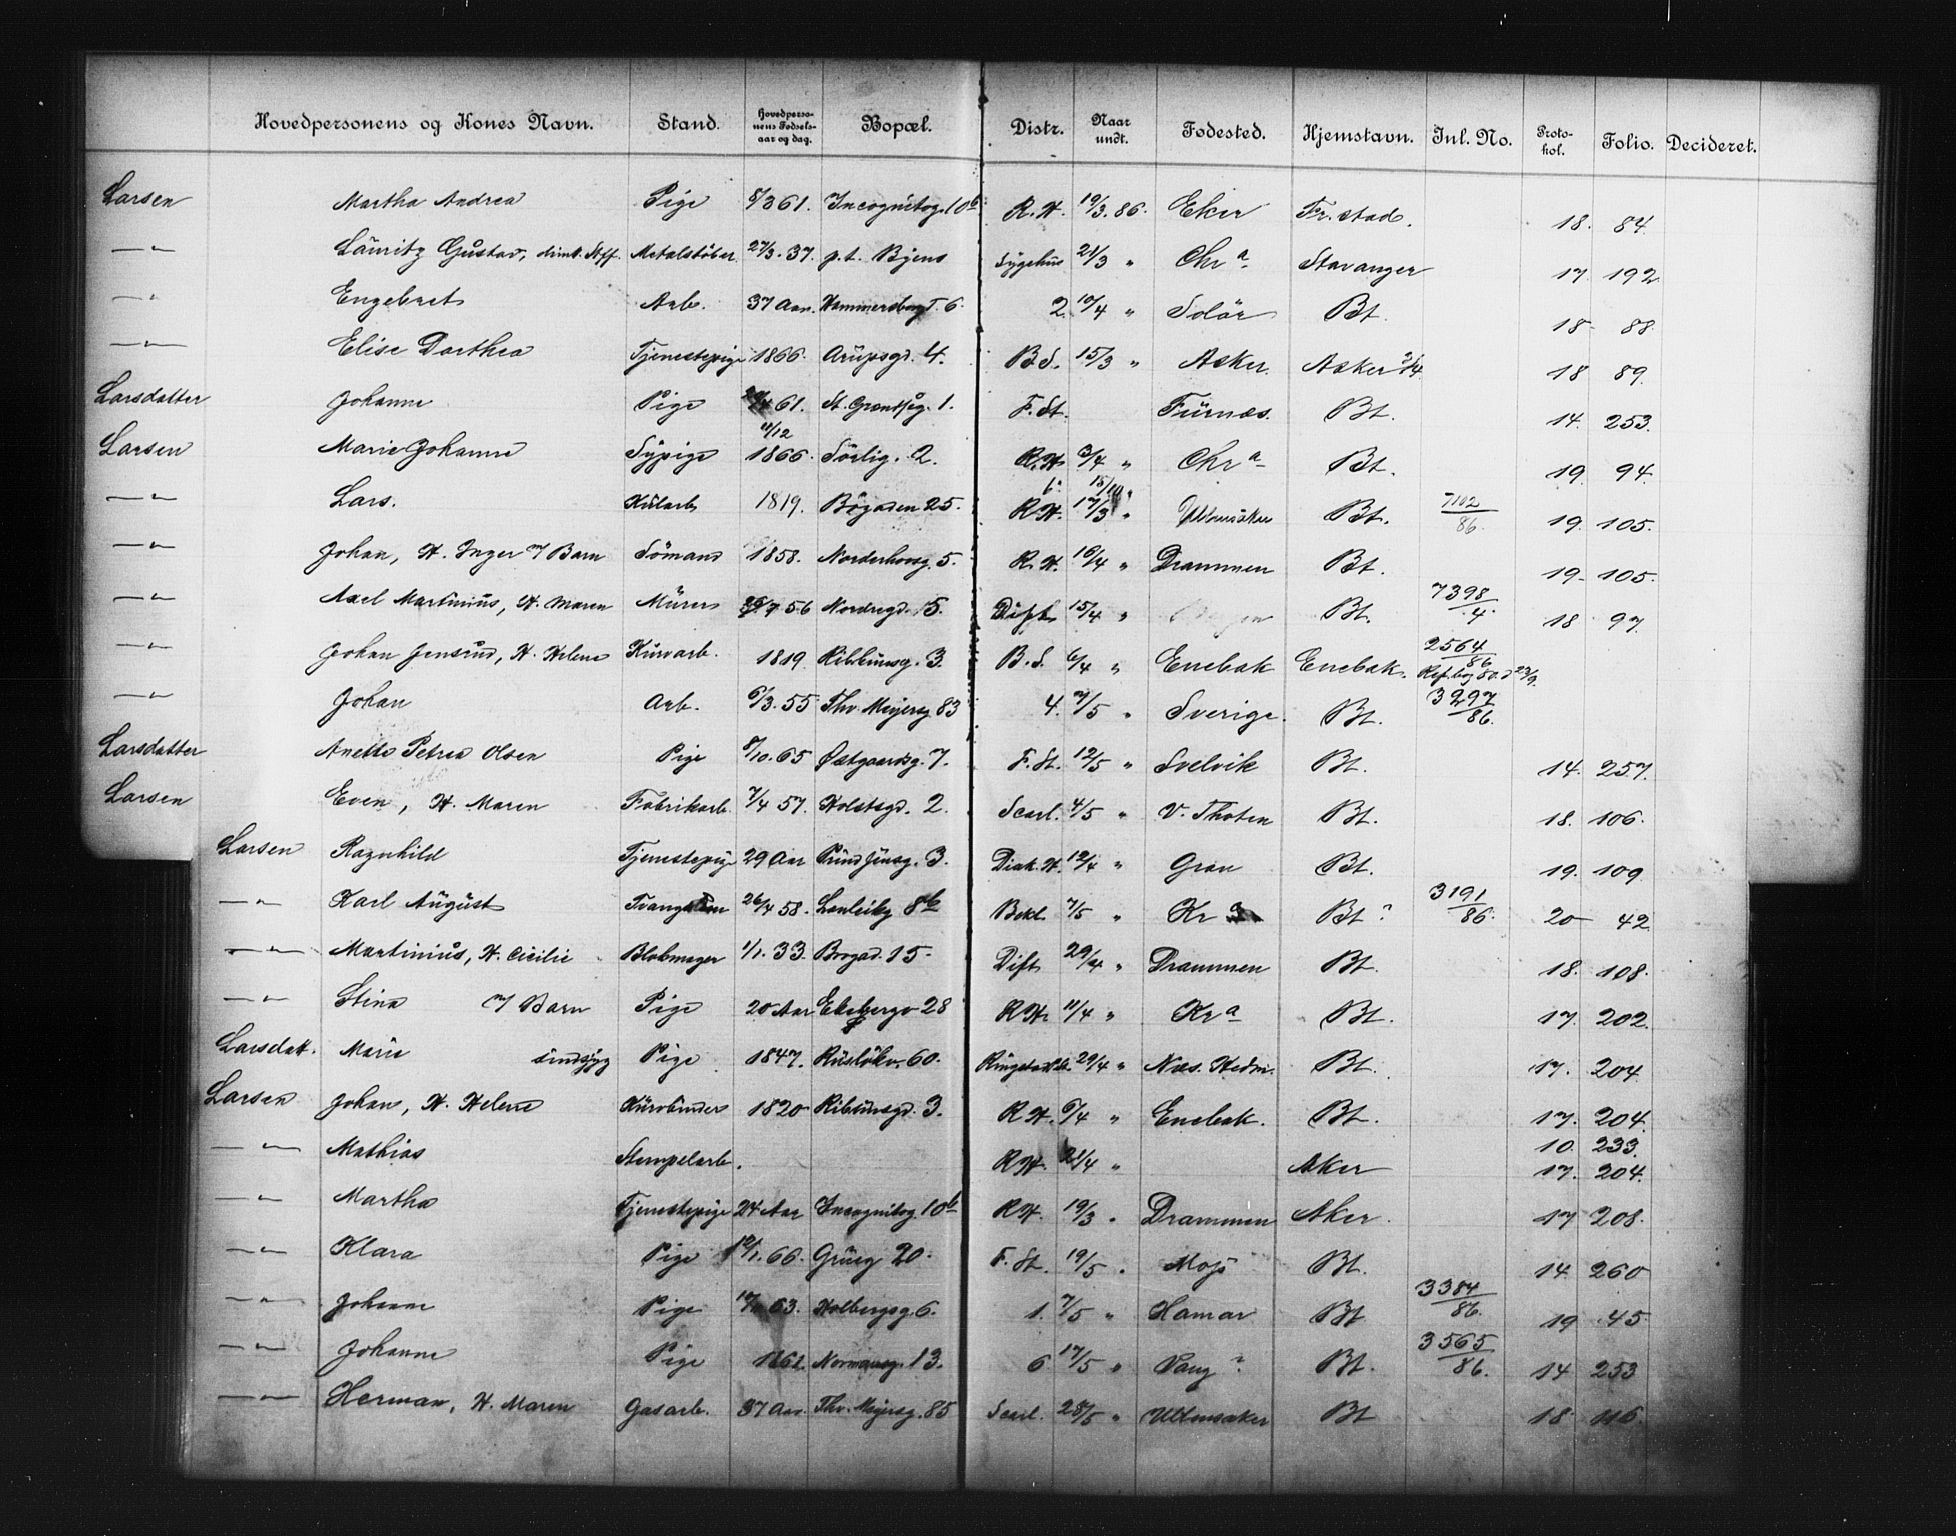 Hovedpersonens og Kones Navn. Stand. Hovedpersonens Fødselsaar og dag. Bopæl. Distr. Naar undt. Fødested. Hjemstavn. Jnl. No. Protokol. Folio. Decideret.
Larsen Martha Andrea Pige 8/3 61. Incognitog. 10b R. H. 19/3. 86. Eker Fr. stad. 18. 84.
—"— Lauritz Gustav, Metalstøber 27/3. 37. p.t. Byens Sygehus 21/3 " Chra. Stavanger 17. 192
—"— Engebret Arb. 37 Aar. Hammersborgt. 6. 2. 10/4 " Solør Bt. 18. 88.
—"— Elise Dorthea Tjenestepige 1866. Arupsgd. 4. B. S. 15/3 " Asker. Asker 2/4. 18 89.
Larsdatter Johanne Pige 61. St. 1. F. St. Furnæs. Bt. 14. 253.
Larsen Marie Johanne Sypige 11/12 1866. Sørlig. 2. R. H. 3/4 " Chra. Bt. 19. 94.
—"— Lars. Kularb 1819. Bøgaden 25. R. H. 17/3 " Ullensaker Bt. 7102/86. 19. 105.
—"— Johan, H. Inger m/ Barn Sømand 1858. Norderhovsg. 5. R. H. 16/4 " Drammen Bt. 19. 105.
—"— Axel Martinius, H. Maren Murer 7 56 Nordregd. 15. Dift. 15/4 " Bt. 7398/4. 18 97.
—"— Johan Jensen, H. Helene Kurvarb. 1819. Ribbunsg. 3. B. S. 6/4 " Enebak Enebak. 2564/86 Ref. bog 23/9.
—"— Johan Arb. 6/3. 55 Thv. Meyersg 83 4. 7/5 " Sverige. Bt. 3297/86.
Larsdatter Anette Petrea Olsen Pige 8/10. 65 Østgaardsg. 7. F. St. 12/5 " Svelvik Bt. 14. 257.
Larsen Even, H. Maren Fabrikarb. 7/4 57. Holstsgd. 2. Scarl. 4/5 " V. Thoten Bt. 18. 106.
Larsen Ragnhild Tjenestepige 29 Aar 3. Diak. H. 12/4 " Gran Bt. 19. 109
—"— Karl August 26/4 58. 8b Bekl. 7/5 " Kra Bt? 3191/86. 20 42.
—"— Martinius, H. Cicilie Blokmager 1/1. 33. Brogad. 15. Dift 29/4 " Drammen Bt. 18. 108.
—"— Stina m/ Barn Pige 20 Aar Ekebergv 28 R. H. 11/4 " Kra Bt. 17. 202.
Larsdatt. Marie sindsyg Pige 1847. Rusløkv. 60. 29/4 " Næs. Hedm. Bt. 17. 204.
Larsen Johan, H. Helene Kurvbinder 1820 Ribbunsgd. 3. R. H. 6/4 " Enebak. Bt. 17. 204.
—"— Mathias Stempelarb. R. H. 21/4 " Aker 10. 233. 17. 204.
—"— Martha Tjenestepige 24 Aar Incognitog. 10b R. H. 19/3 " Drammen Aker. 17 208.
—"— Klara Pige 12/1. 66. Grusg 20. F. St. 19/5 " Moss Bt. 14. 260
—"— Johanne Pige 63. Holbergsg. 6. 1. 7/5 " Hamar Bt 3384/86. 19. 45.
—"— Johanne Pige 1861. Normansg. 13. 6 17/5 " Vang? Bt. 3565/86. 14 253
—"— Herman, H. Maren Gasarb. 37 Aar. Thv. Meyersg. 85 Scarl. 28/5 " Ullensaker Bt 18. 116.